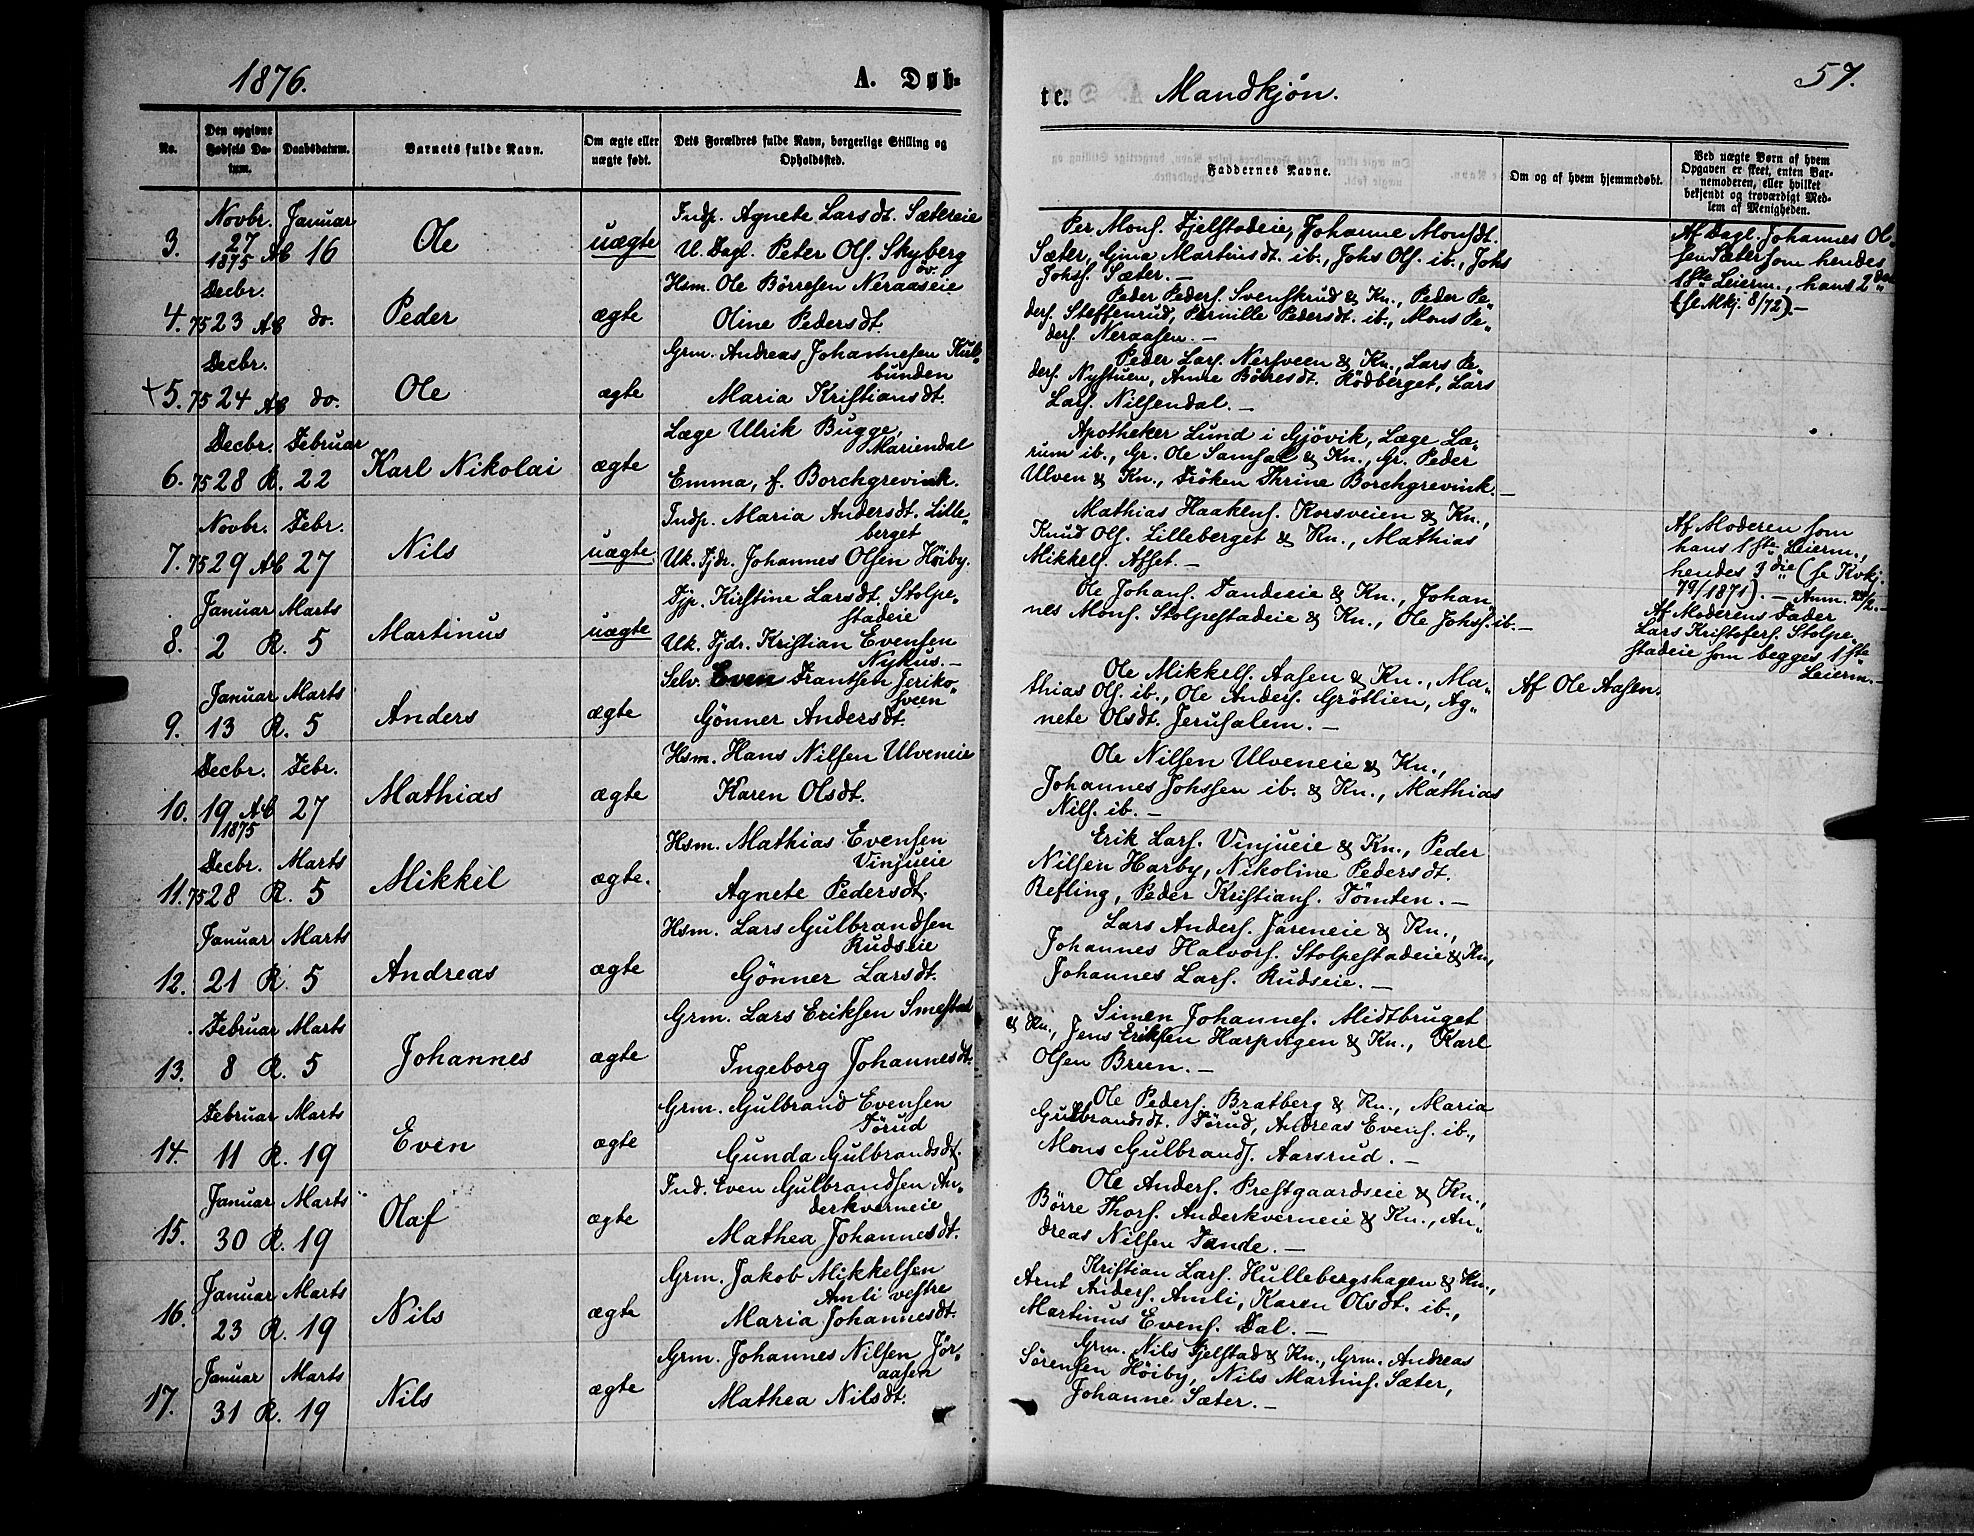 1876.
A. Døb-
te.
Mandkjøn.
57.
No.
Den opgivne Fødsels Da-tum.
Daabsdatum.
Barnets fulde Navn.
Om ægte eller uægte født.
Dets Forældres fulde Navn, borgerlige Stilling og Opholdssted.
Faddernes Navne.
Om og af hvem hjemmedøbt.
Ved uægte Børn af hvem Opgaven er skeet, enten Bar-nemoderen, eller hvilket bekjendt og troværdigt Med-lem af Menigheden.
3. Novbr. 27 1875 AB Januar 16 Ole uægte
Indp. Agnete Larsdt. Sætereie
U. Dagl. Peter Ols. Skyberg öv.
Per Mons. Fjelstadeie, Johanne Monsdt.
Sæter, Gina Martinsdt ib., Johs Ols. ib., Johs
Johs. Sæter. —
Af Dagl. Johannes Ol-
sen Sæter som hendes
1ste Leierm., hans 2den
(se Mkj. 8/72). —
4. Decbr. 75 23 AB do. Peder ægte
Hsm. Ole Börresen Neraaseie
Oline Pedersdt.
Peder Peders. Svenskrud & Kn., Peder Pe-
ders. Steffenrud, Pernille Pedersdt. ib., Mons Pe-
ders. Neraasen. —
+ 5. Decbr. 75 24 AB do. Ole ægte
Grm. Andreas Johannesen Kul-
bunden
Maria Kristiansdt.
Peder Lars. Nersveen & Kn., Lars Pe-
ders. Nystuen, Anne Börresdt. Rödberget, Lars
Lars. Nilsendal. —
6. Decbr. 75 28 R. Februar 22 Karl Nikolai ægte
Læge Ulrik Bugge,
Mariendal
Emma, f. Borchgrevink.
Apotheker Lund i Gjövik, Læge Læ-
rum ib., Gr. Ole Samsal & Kn., Gr. Peder
Ulven & Kn., Fröken Thrine Borchgrevink. —
7. Novbr. 75 29 AB Febr. 27 Nils uægte
Indp. Maria Andersdt. Lille-
berget
Uk. Tjdr. Johannes Olsen Höiby.
Mathias Haakens. Korsveien & Kn.,
Knud Ols. Lilleberget & Kn., Mathias
Mikkels. Afset. —
Af Moderen som
hans 1ste Leierm.,
hendes 3die (se Kvkj.
79/1871). —
8. Januar 2 R. Marts 5 Martinus uægte
Tjp. Kirstine Larsdt. Stolpe-
stadeie
Uk. Tjdr. Kristian Evensen
Nykus. —
Ole Johans. Tandeeie & Kn., Johan-
nes Mons. Stolpestadeie & Kn., Ole Johs. ib. —
Af Moderens Fader
Lars Kristofers. Stolpe-
stadeie som begges 1ste
Leierm. —
9. Januar 13 R. Marts 5 Anders ægte
Selv. Even Frantsen Jeriko-
sveen
Gönner Andersdt.
Ole Mikkels. Aasen & Kn., Ma-
thias Ols. ib., Ole Anders. Grötlien, Ag-
nete Olsdt. Jerusalem. —
Af Ole Aasen.
10. Decbr. 19 AB 1875 Febr. 27 Mathias ægte
Hsm. Hans Nilsen Ulveneie
Karen Olsdt.
Ole Nilsen Ulveneie & Kn.,
Johannes Johssen ib. & Kn., Mathias
Nils. ib. —
11. Decbr. 75 28 R. Marts 5 Mikkel ægte.
Hsm. Mathias Evensen
Vinjueie
Agnete Pedersdt.
Erik Lars. Vinjueie & Kn., Peder
Nilsen Harby, Nikoline Pedersdt.
Refling, Peder Kristians. Tömten. —
12. Januar 21 R. Marts 5 Andreas ægte
Hsm. Lars Gulbrandsen
Rudseie
Gönner Larsdt.
Lars Anders. Jareneie & Kn.,
Johannes Halvors. Stolpestadeie & Kn.,
Johannes Lars. Rudseie. —
13. Februar 8 R. Marts 5 Johannes ægte
Grm. Lars Eriksen Smestad
Ingeborg Johannesdt.
Simen Johannes. Midtbruget
& Kn., Jens Eriksen Harpvigen & Kn., Karl
Olsen Breen. —
14. Februar 11 R. Marts 19 Even ægte
Grm. Gulbrand Evensen
Törud
Gunda Gulbrandsdt.
Ole Peders. Bratberg & Kn., Maria
Gulbrandsdt. Törud, Andreas Evens. ib.,
Mons Gulbrands. Aarsrud. —
15. Januar 30 R. Marts 19 Olaf ægte
Ind. Even Gulbrandsen An-
derkverneie
Mathea Johannesdt.
Ole Anders. Prestgaardseie & Kn.,
Börre Thors. Anderkverneie & Kn., An-
dreas Nilsen Tande. —
16. Januar 23 R. Marts 19 Nils ægte
Grm. Jakob Mikkelsen
Amli vestre
Maria Johannesdt.
Kristian Lars. Hullebergshagen & Kn.,
Arnt Anders. Amli, Karen Olsdt. ib.,
Martinus Evens. Dal. —
17. Januar 31 R. Marts 19 Nils ægte
Grm. Johannes Nilsen Jör-
aasen
Mathea Nilsdt.
Grm. Nils Fjelstad & Kn., Grm. Andreas
Sörensen Höiby, Nils Martins. Sæter,
Johanne Sæter. —